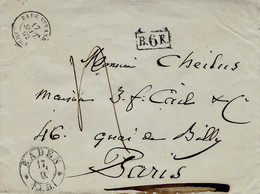 B.6K.
Monsieur Cheilus
Maison J. f. Cail & Cº
46. quai de Billy
Paris
BADEN
17